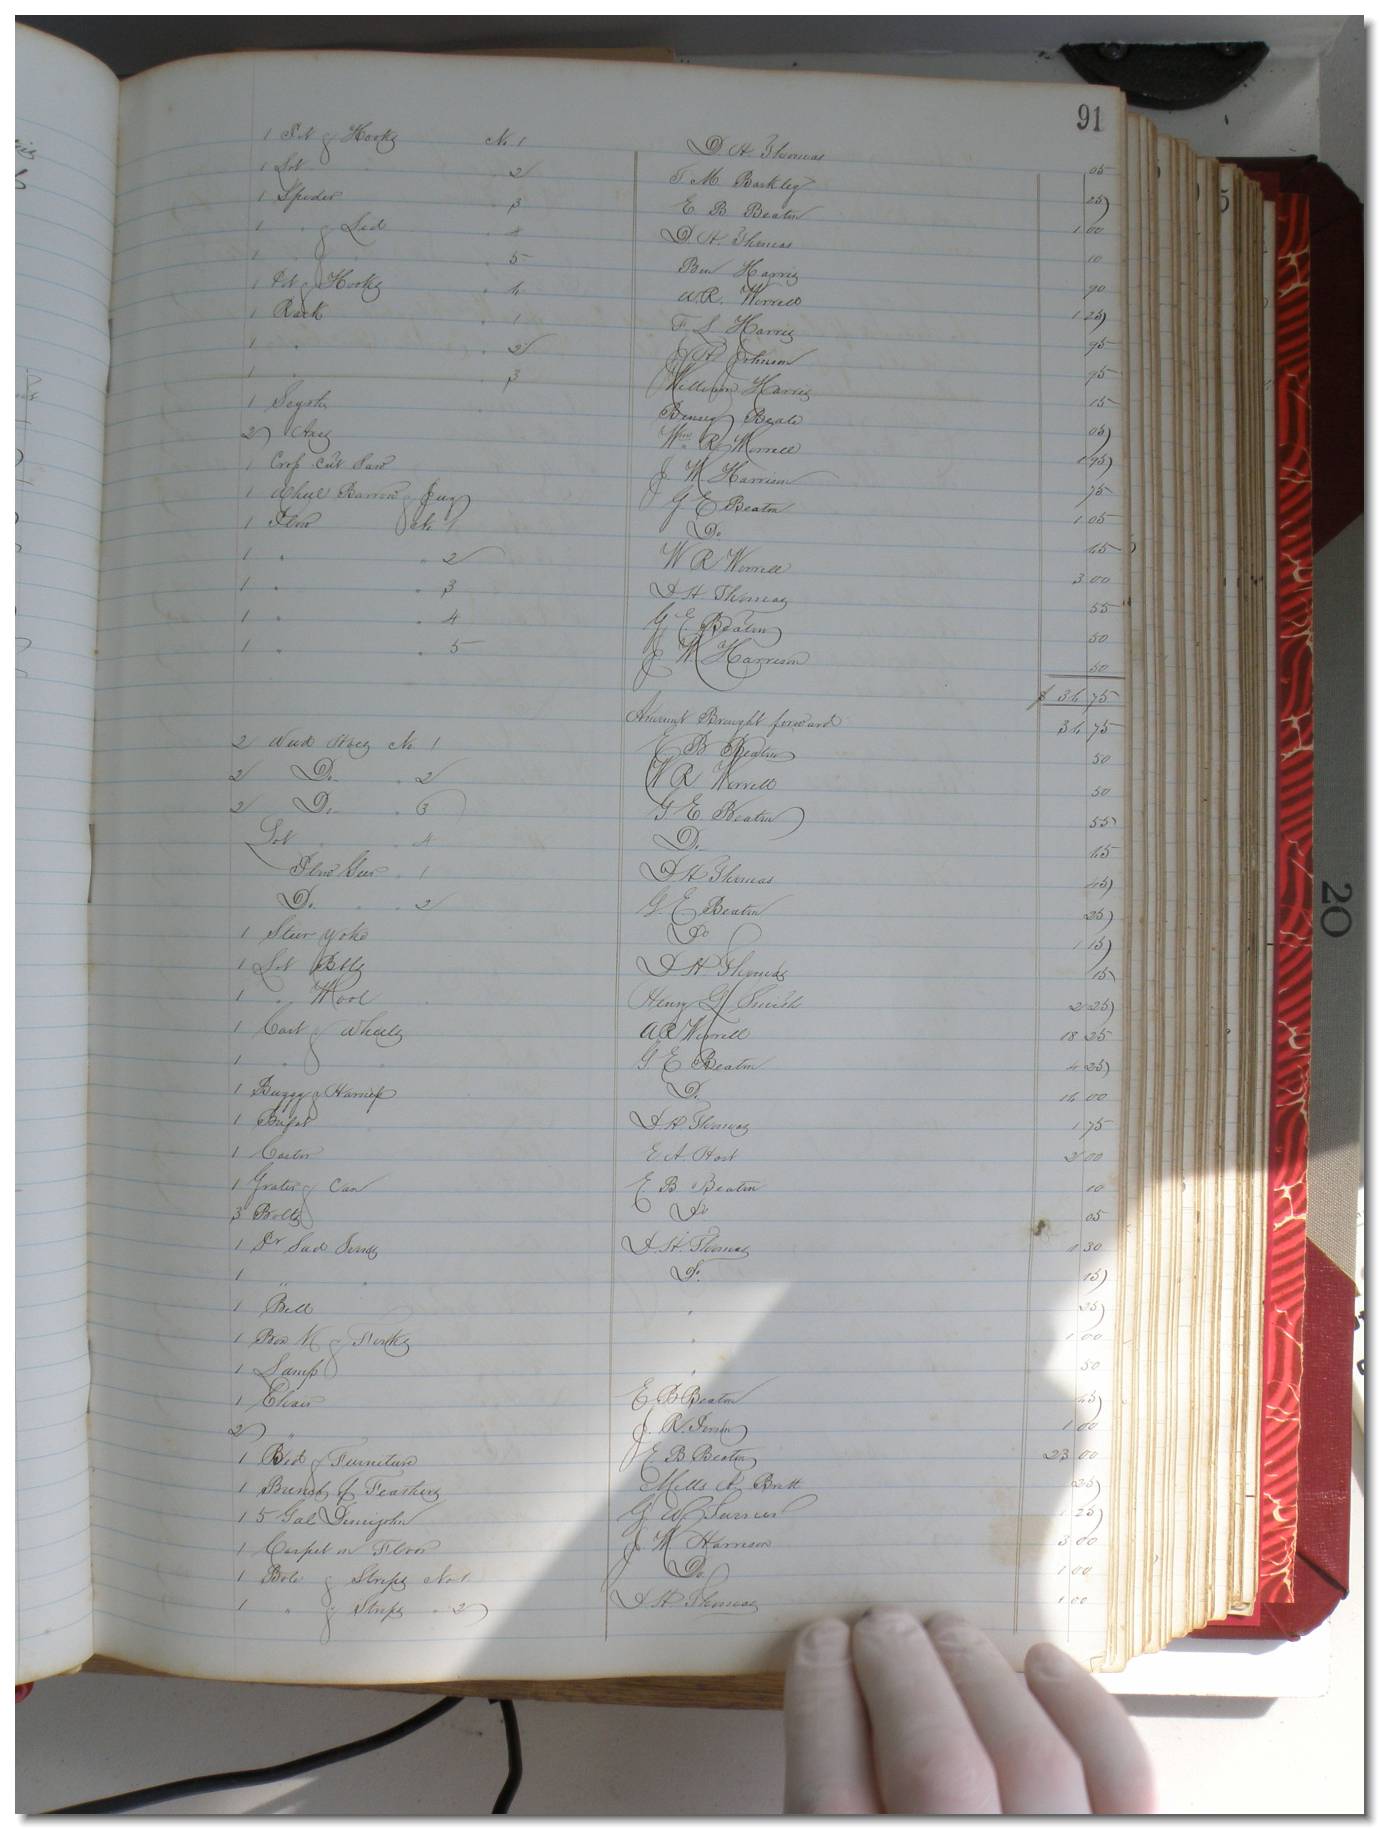 91
1 Pot & Hooks No. 1 D H Thomas 05
1 Lot " 2 T M Barkley 25
1 Spider " 3 E B Beaton 1 00
1 " & Lid " 4 D. H. Thomas 10
1 " " 5 Ben Harris 90
1 Pot & Hooks " 6 W. R. Worrell 1 25
1 Rack " 1 F S Harris 95
1 " " 2 Johnson 95
1 " " 3 William Harris 15
1 Scyth Benny Beale 05
2 Axes Wm R Worrell 1 95
1 Crop Cut Saw J W Harrison 75
1 Wheel Barrow & Jug G E Beaton 1 05
1 Plow No 1 Do 65
1 " " 2 W R Worrell 3 00
1 " " 3 D H Thomas 55
1 " " 4 G E Beaton 50
1 " " 5 J W Harrison 50
$ 36 75
Amount Brought forward 36 75
2 Weed Hoes No 1 E B Beaton 50
2 Do. " 2 W R Worrell 50
2 Do. " 3 G E Beaton 55
Lot " 4 Do 65
Plow Gear " 1 D H Thomas 45
Do. " 2 G. E Beaton 25
1 Steer Yoke Do 1 15
1 Lot Bells D H Thomas 15
1 " Wool Henry G 2 25
1 Cart & Wheels W R Worrell 18 25
1 " " G E Beaton 4 25
1 Buggy & Harness Do. 16 00
1 Bufat D H Thomas 1 75
1 Castor E A Hart 2 00
1 Grater & Can E B Beaton 10
3 Bolts Do 05
1 Pr Sad Irons D. H. Thomas 1 30
1 " " Do. 15
1 Bell " 25
1 Box K & Forks " 1 00
1 Lamp " 50
1 Chair E B Beaton 45
2 " J. R. 1 00
1 Bed & Furniture E B Beaton 23 00
1 Bunch of Feathers Mills A Britt 25
1 5 Gal Demijohn G W 1 25
1 Carpet on Floor J. W Harrison 3 00
1 & Strips No 1 Do 1 00
1 " & Strips " 2 D. H. Thomas 1 00
20